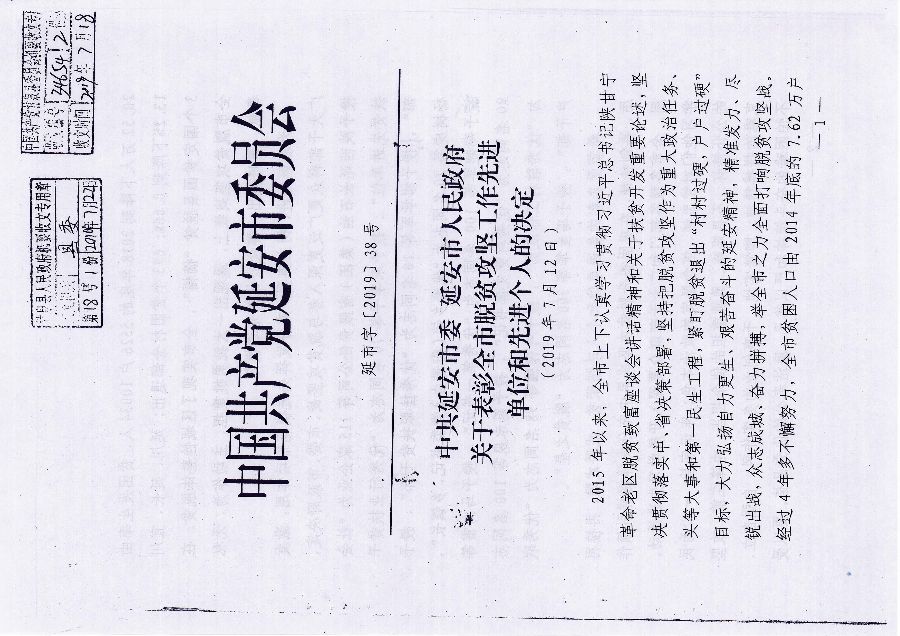 中国共产党延安市委员会
延市字〔2019〕38号
中共延安市委 延安市人民政府
关于表彰全市脱贫攻坚工作先进
单位和先进个人的决定
（2019年7月12日）
2015年以来，全市上下认真学习贯彻习近平总书记陕甘宁
革命老区脱贫致富座谈会讲话精神和关于扶贫开发重要论述，坚
决贯彻落实中、省决策部署，坚持把脱贫攻坚作为重大政治任务、
头等大事和第一民生工程，紧盯脱贫退出“村村过硬，户户过硬”
目标，大力弘扬自力更生、艰苦奋斗的延安精神，精准发力、尽
锐出战，众志成城、奋力拼搏，举全市之力全面打响脱贫攻坚战。
经过4年多不懈努力，全市贫困人口由2014年底的7.62万户
— 1 —
收文时间 2019年7月18
县人民政府机要收文专用章
县委
第18号1份2019年7月22日